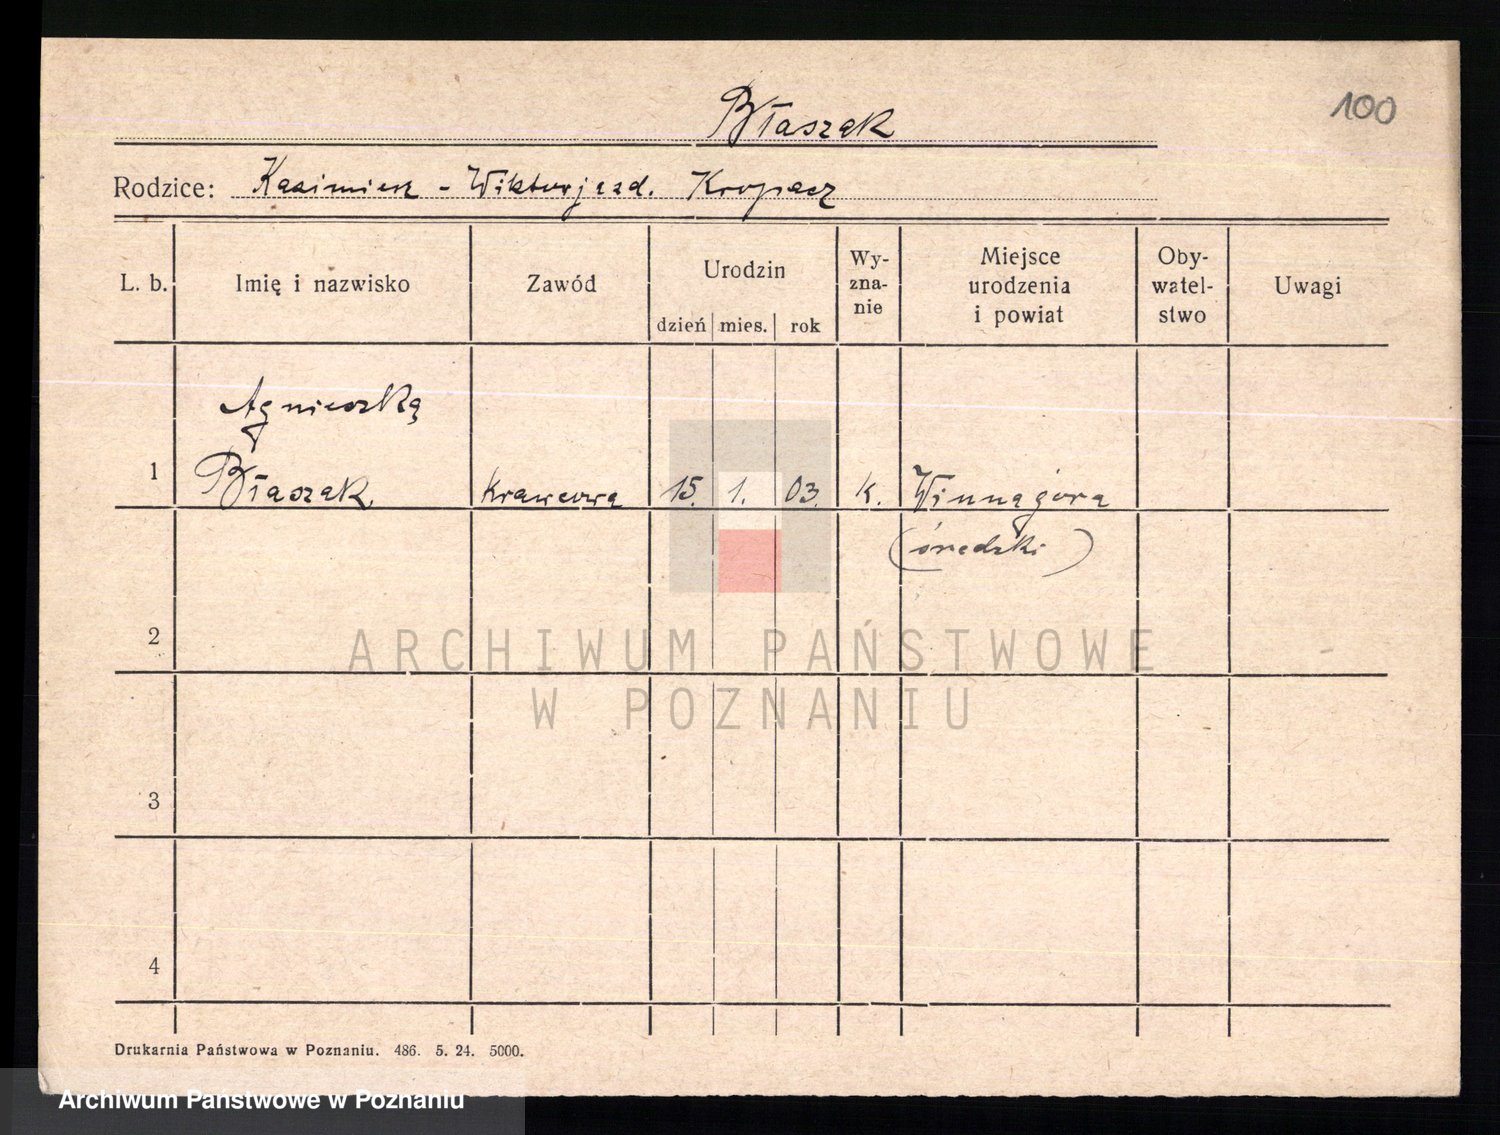 100
Błaszak
Rodzice: Kazimierz - Wiktorja zd. Kropacz
L. b. Imię i nazwisko Zawód Urodzin dzień mies. rok Wy-zna-nie Miejsce urodzenia i powiat Oby-watel-stwo Uwagi
Agnieszka
1 Błaszak krawcowa 15. 1. 03. k. Winnagóra
(średzki)
2
ARCHIWUM PAŃSTWOWE
W POZNANIU
3
4
Drukarnia Państwowa w Poznaniu. 486. 5. 24. 5000.
Archiwum Państwowe w Poznaniu